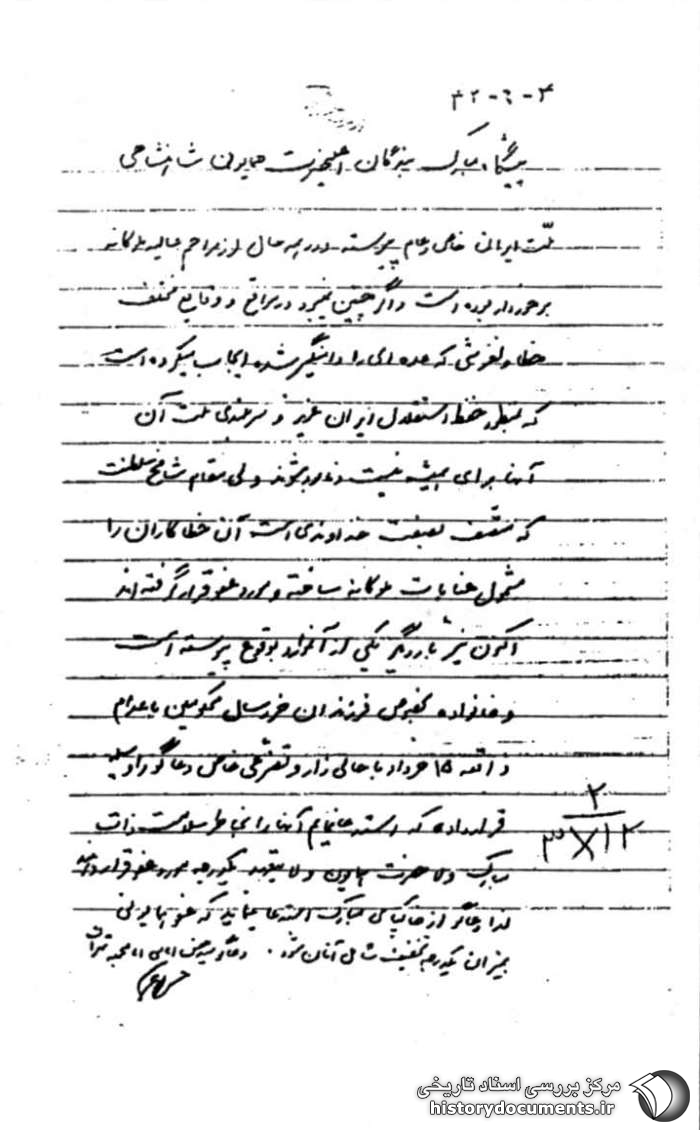 ۴-۶-۴۲
پیشگاه مبارک بندگان اعلیحضرت همایونی شاهنشاهی
ملت ایران خاص و عام پیوسته و در همه حال از مراحم عالیه ملوکانه
برخوردار بوده است و اگر چنین نمیبود در مواقع و وقایع مختلف
خطا و لغزشی که عده‌ای را دامنگیر شده ایجاب میکرده است
که بمنظور حفظ استقلال ایران عزیز و سربلندی ملت آن
آنها برای همیشه نیست و نابود شوند ولی مقام شامخ سلطنت
که متصف بصفت خداوندی است آن خطاکاران را
مشمول عنایات ملوکانه ساخته و مورد عفو قرار گرفته‌اند
اکنون نیز بار دیگر یکی از آن موارد بوقوع پیوسته است
و خانواده بخصوص فرزندان خردسال محکومین باعدام
واقعه ۱۵ خرداد با حالی زار و تضرعی خاص دعاگو را وسیله
قرار داده که استدعا نمایم آنها را بخاطر سلامت ذات
مبارک و والاحضرت همایون ولایتعهد یکدرجه مورد عفو قرار دهند
لذا دعاگو از خاکپای مبارک استدعا مینماید که عفو همایونی
بمیزان یکدرجه تخفیف شامل آنان شود. دعاگو سید حسن امامی امام جمعه تهران
۲
۱۲ ۳
مرکز بررسی اسناد تاریخی
historydocuments.ir